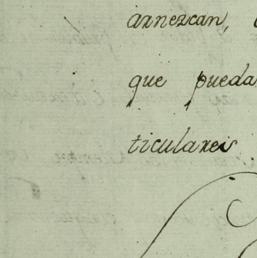 arnezcan,
que pueda
ticulares